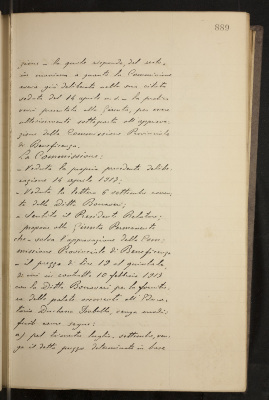 889
zione - la quale risponde, del resto,
in massima a quanto la Commissione
aveva già deliberato nella sua citata
seduta del 14 agosto u. s. - la pratica
verrà presentata alla Giunta, per essere
ulteriormente sottoposta all'approva-
zione della Commissione Provinciale
di Beneficenza.
La Commissione;
- Veduta la propria precedente delibe-
razione 14 agosto 1913;
- Veduta la lettera 6 settembre corren-
te della Ditta Bonavari;
- Sentito il Presidente Relatore;
propone alla Giunta Municipale
che - salva l'approvazione della Com-
missione Provinciale di Beneficenza
- il prezzo di lire 12 al quintale
di cui in contratto 10 febbraio 1913
con la Ditta Bonavari per la fornitu-
ra delle patate occorrenti all'Educa-
torio Duchessa Isabella, venga modi-
ficato come segue:
a) pel bimestre luglio, settembre, ven-
ga il detto prezzo determinato in base